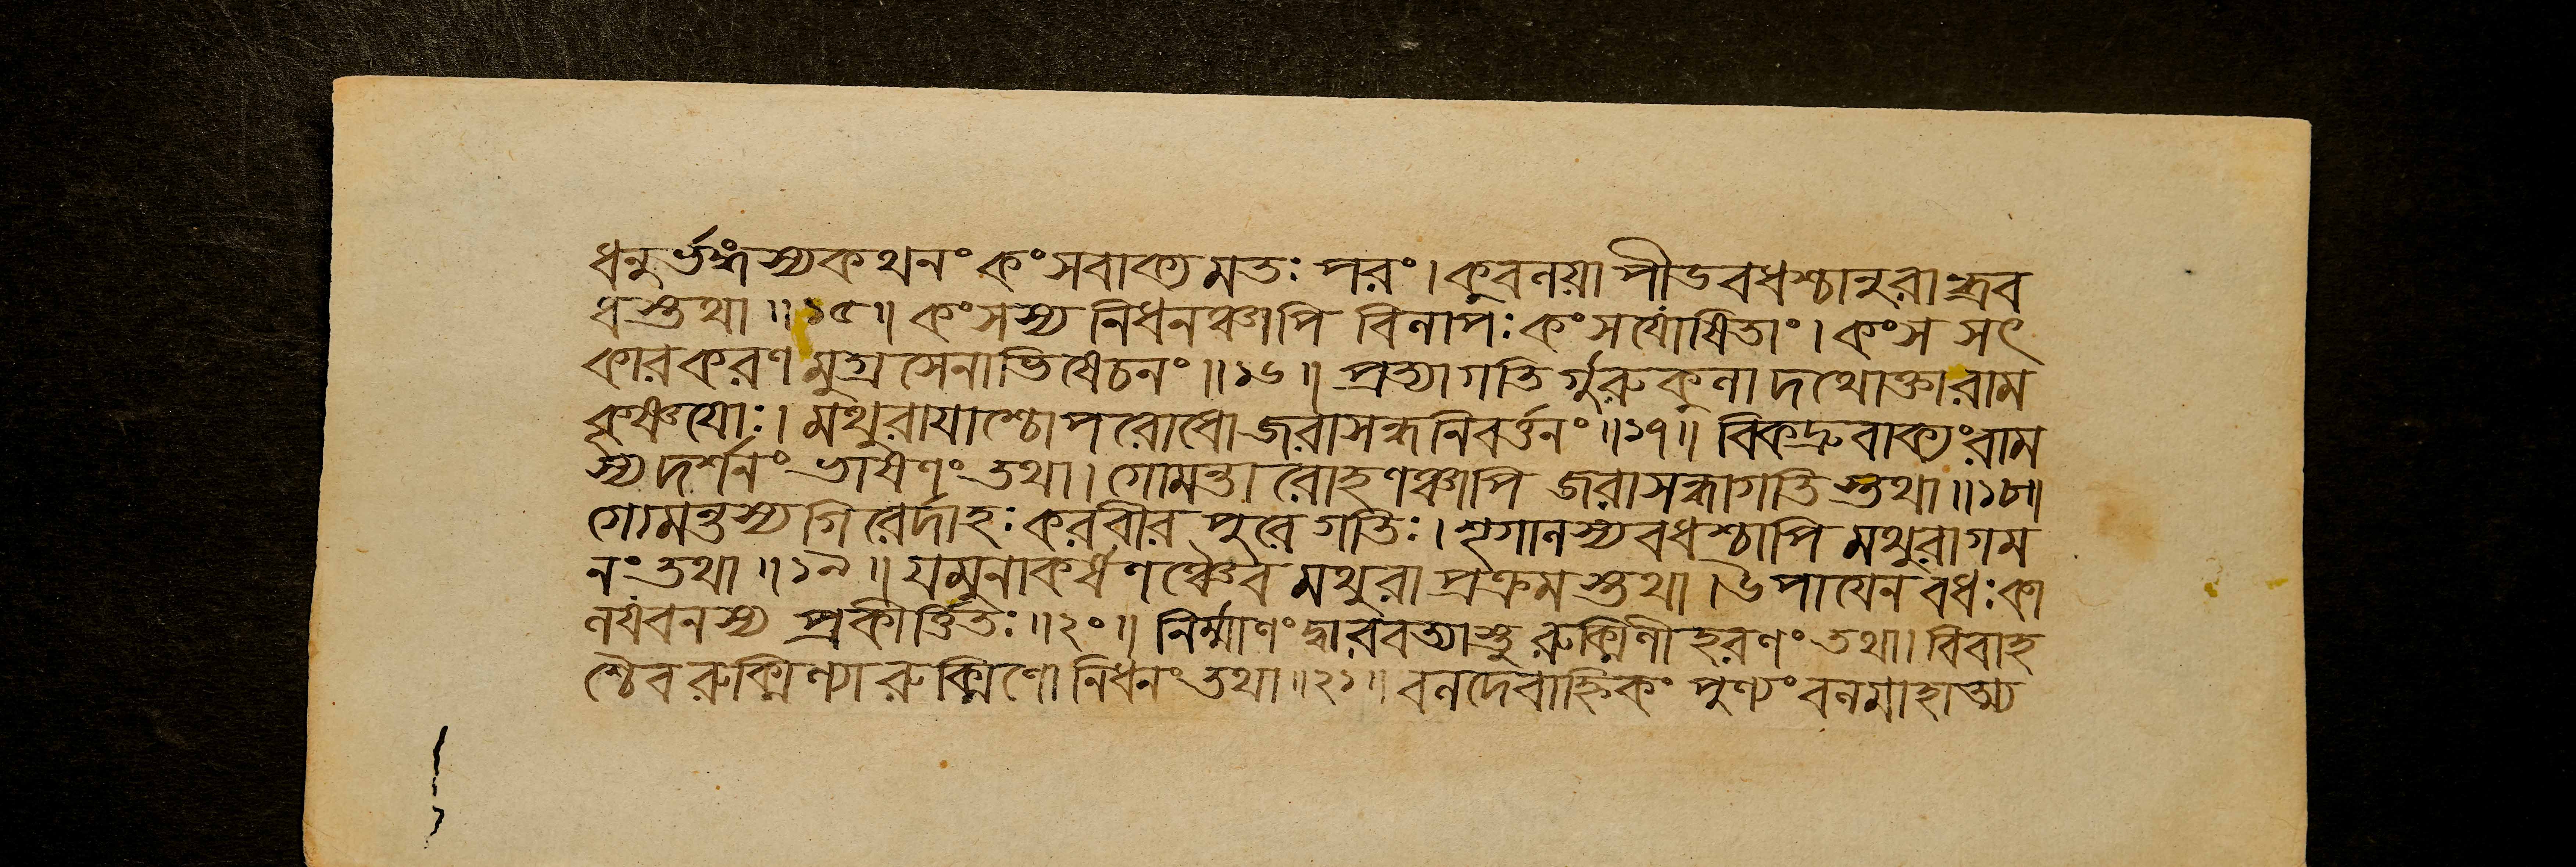 ধনুর্ভঙ্গস্যকথনং কংসবাক্যমতঃ পরং। কুবলয়াপীডবধশ্চানুরান্ধ্রব
ধস্তথা॥১৫॥ কংসস্য নিধনঞ্চাপি বিলাপঃ কংসযোষিতাং। কংস সৎ
কারকরণমুগ্রসেনাভিষেচনং॥১৬॥ প্রত্যাগতির্গুরুকুলাদথোক্তা রাম
কৃষ্ণযোঃ। মথুরাযাশ্চোপরোধো জরাসন্ধনিবর্ত্তনং॥১৭॥ বিকদ্রুবাক্যং রাম
স্য দর্শনং ভাষণং তথা। গোমন্তারোহণঞ্চাপি জরাসন্ধাগতিস্তথা॥১৮॥
গোমন্তস্য গিরের্দাহঃ করবীরপুরে গতিঃ। শৃগালস্যবধশ্চাপি মথুরাগম
নং তথা॥১৯॥ যমুনাকর্ষণঞ্চৈব মথুরাপ্রক্রমস্তথা। উপাযেন বধঃ কা
লযবনস্য প্রকীর্ত্তিতঃ॥২০॥ নির্ম্মাণং দ্বারবত্যাস্তু রুক্মিণীহরণং তথা। বিবাহ
শ্চৈব রুক্মিণ্যা রুক্মিণো নিধনং তথা॥২১॥ বলদেবাহ্নিকং পুণ্যং বলমাহাত্ম্য